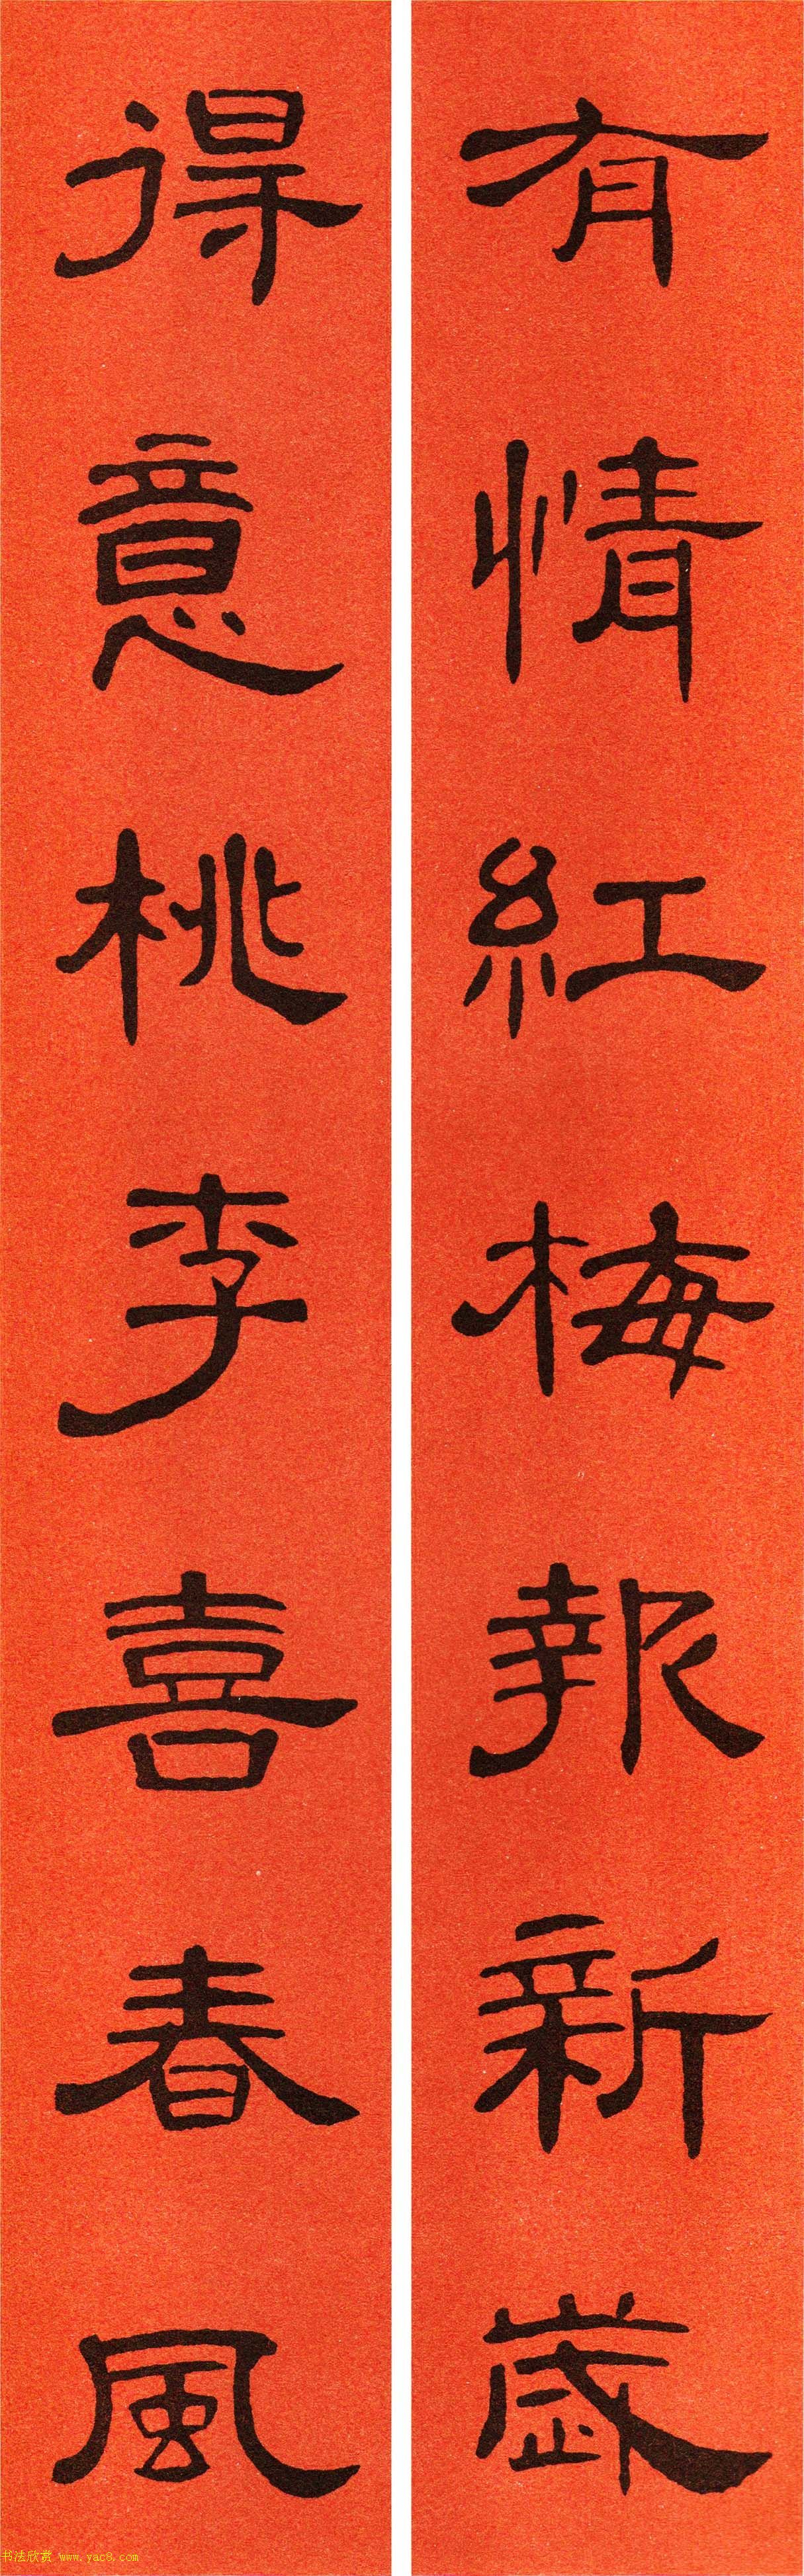 有情紅梅報新歲
得意桃李喜春風
书法欣赏 www.yac8.com